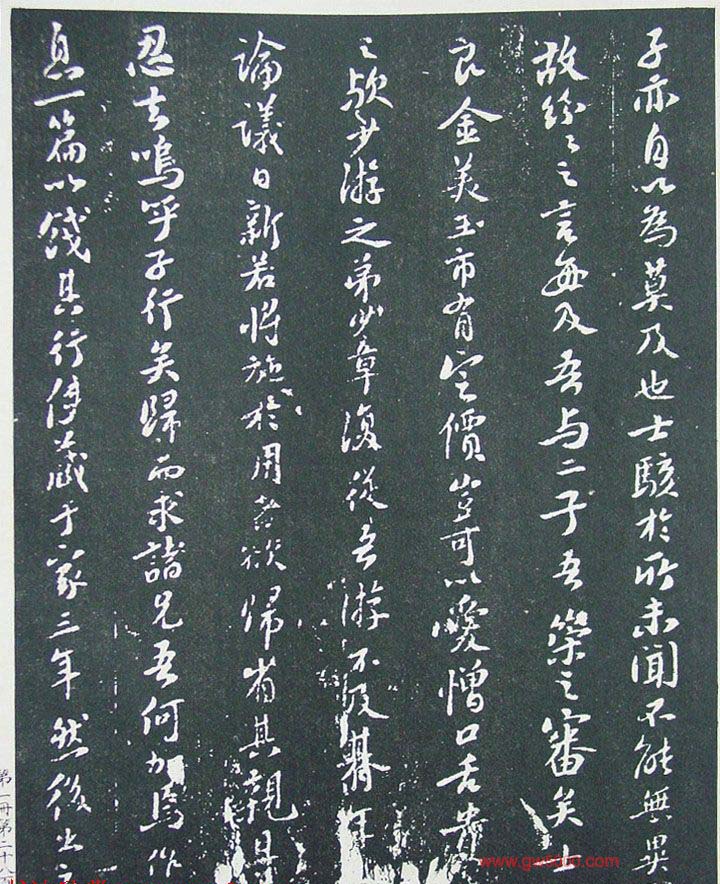 子亦自以為莫及也士駭於所未聞不能無異
故紛々之言每及吾与二子吾策之審矣士
良金美玉市有定價豈可以愛憎口舌貴
之欤少游之弟少章復從吾游不及朞年
論議日新若將施於用者欲歸省其親且
忍去嗚呼子行矣歸而求諸兄吾何加焉作
息一篇以餞其行使藏于家三年然後出之
第一冊第二十八